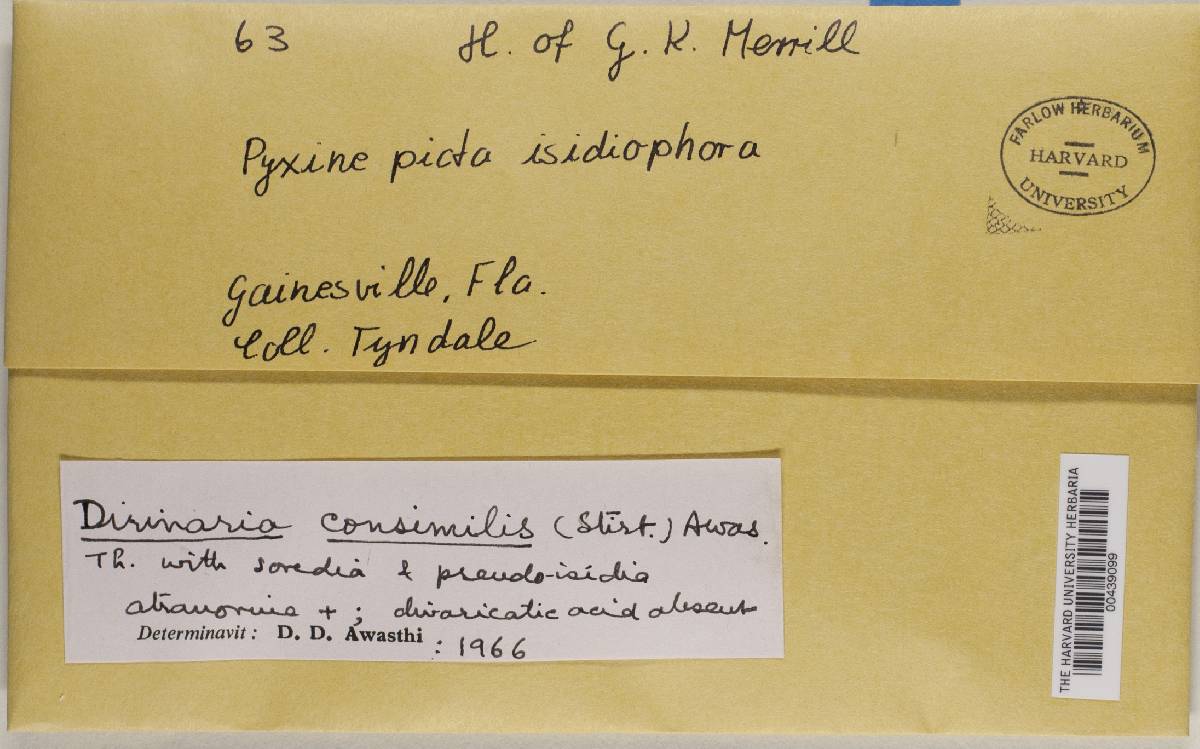 63 H. of G. K. Merrill
FARLOW HERBARIUM
HARVARD
UNIVERSITY
Pyxine picta isidiophora
Gainesville, Fla.
Coll. Tyndale
Dirinaria consimilis (Stirt.) Awas.
Th. with soredia & pseudo-isidia
atranorine + ; divaricatic acid absent
Determinavit: D. D. Awasthi : 1966
THE HARVARD UNIVERSITY HERBARIA
00439099